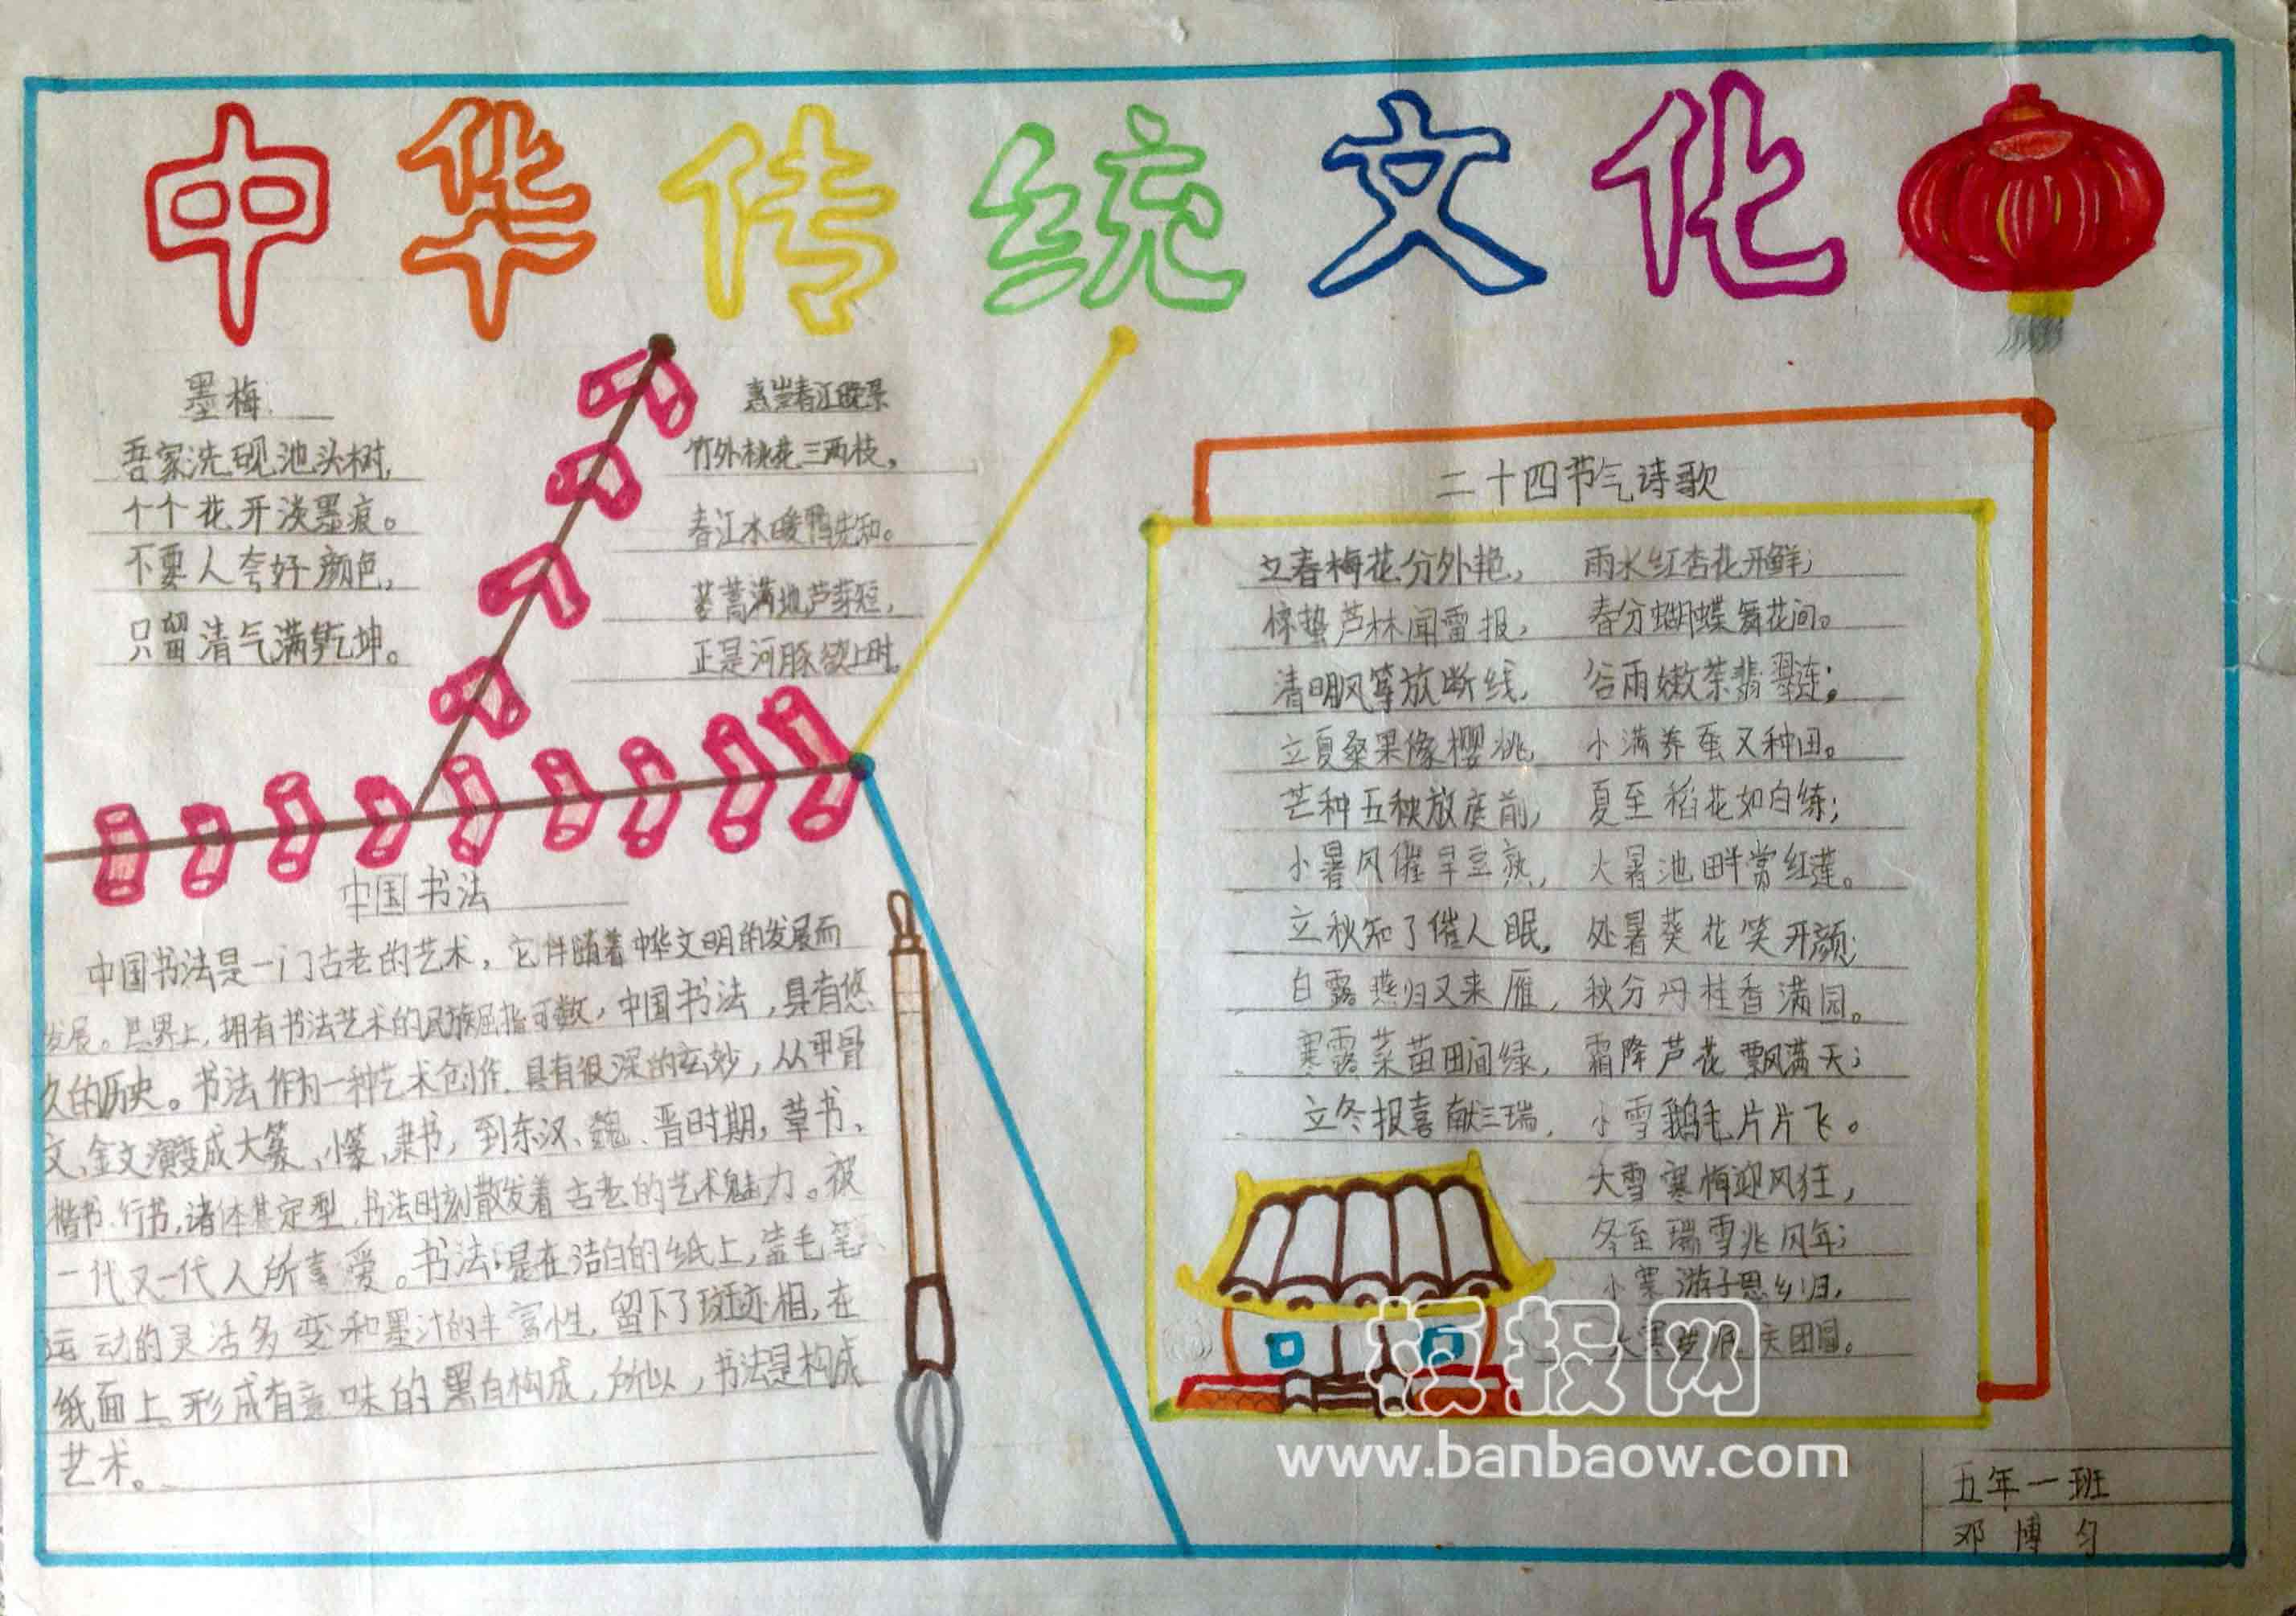 中华传统文化
墨梅
吾家洗砚池头树,
个个花开淡墨痕。
不要人夸好颜色,
只留清气满乾坤。
惠崇春江晚景
竹外桃花三两枝,
春江水暖鸭先知。
蒌蒿满地芦芽短,
正是河豚欲上时。
中国书法
中国书法是一门古老的艺术,它伴随着中华文明的发展而
发展。世界上,拥有书法艺术的民族屈指可数,中国书法,具有悠
久的历史。书法作为一种艺术创作,具有很深的玄妙,从甲骨
文、金文演变成大篆、小篆、隶书,到东汉、魏、晋时期,草书、
楷书、行书,诸体基定型,书法时刻散发着古老的艺术魅力。被
一代又一代人所喜爱。书法:是在洁白的纸上,毛笔
运动的灵活多变和墨汁的丰富性,留下了斑迹相,在
纸面上形成有意味的黑白构成,所以,书法是构成
艺术。
二十四节气诗歌
立春梅花分外艳, 雨水红杏花开鲜;
惊蛰芦林闻雷报, 春分蝴蝶舞花间。
清明风筝放断线, 谷雨嫩茶翡翠连;
立夏桑果像樱桃, 小满养蚕又种田。
芒种五秧放庭前, 夏至稻花如白练;
小暑风催早豆熟, 大暑池畔赏红莲。
立秋知了催人眠, 处暑葵花笑开颜;
白露燕归又来雁, 秋分丹桂香满园。
寒露菜苗田间绿, 霜降芦花飘满天;
立冬报喜献三瑞, 小雪鹅毛片片飞。
大雪寒梅迎风狂,
冬至瑞雪兆风年;
小寒游子思乡归,
大寒岁底 团圆。
板报网
www.banbaow.com
五年一班
邓博匀